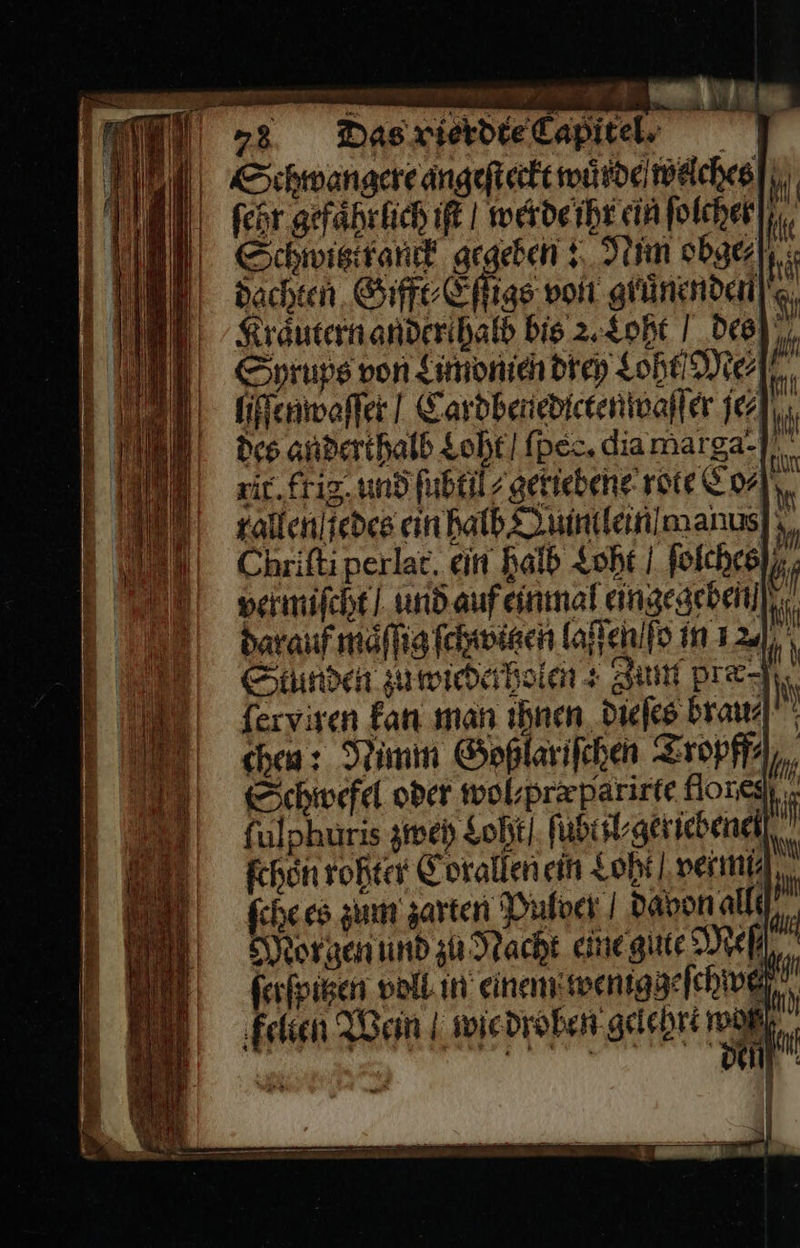 78 Das vierdte Capitel.
Schwangere angeſteckt wuͤrde/ welches
ſehr gefaͤhrlich iſt / werde ihr ein ſolcher
Schwitztranck gegeben : Nim obge⸗
dachten Gifft⸗Eſſigs von gruͤnenden
Kraͤutern anderthalb bis 2. Loht / des
Syrups von Limonien drey Loht/ Me⸗
liſſenwaſſer / Cardbenedictenwaſſer je⸗
des anderthalb Loht / ſpec. dia marga-
rit. frig. und ſubtil⸗geriebene rote Co⸗
rallen/ jedes ein halb Quintlein/ manus
Chriſti perlat. ein halb Loht / ſolches
vermiſcht / und auf einmal eingegeben/
darauf maͤſſig ſchwitzen laſſen/ ſo in 12.
Stunden zu wiederholen : Zum præ-
ſerviren kan man ihnen dieſes brau⸗
chen : Nimm Goßlariſchen Tropff⸗
Schwefel oder wol⸗præparirte flores
ſulphuris zwey Loht / ſubtil⸗geriebener
ſchoͤn rohter Corallen ein Loht / vermi⸗
ſche es zum zarten Pulver / davon alle
Morgen und zu Nacht eine gute Meſ⸗
ſerſpitzen voll in einem wenig geſchwe⸗
felten Wein / wie droben gelehrt wor⸗
den